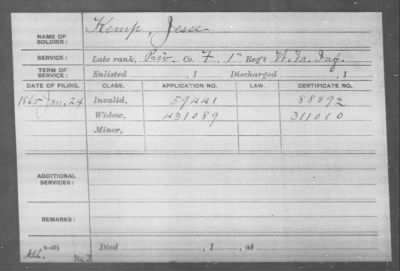 NAME OF SOLDIER: Kemp, Jesse
SERVICE: Late rank, Priv. Co. F, 1" Reg't W. Va. Inf.
TERM OF SERVICE: Enlisted , 1 Discharged , 1
DATE OF FILING. CLASS. APPLICATION NO. LAW. CERTIFICATE NO.
1865 Jan. 24 Invalid, 59441 88892
Widow, 431089 311010
Minor,
ADDITIONAL SERVICES:
REMARKS:
Died , 1 , at